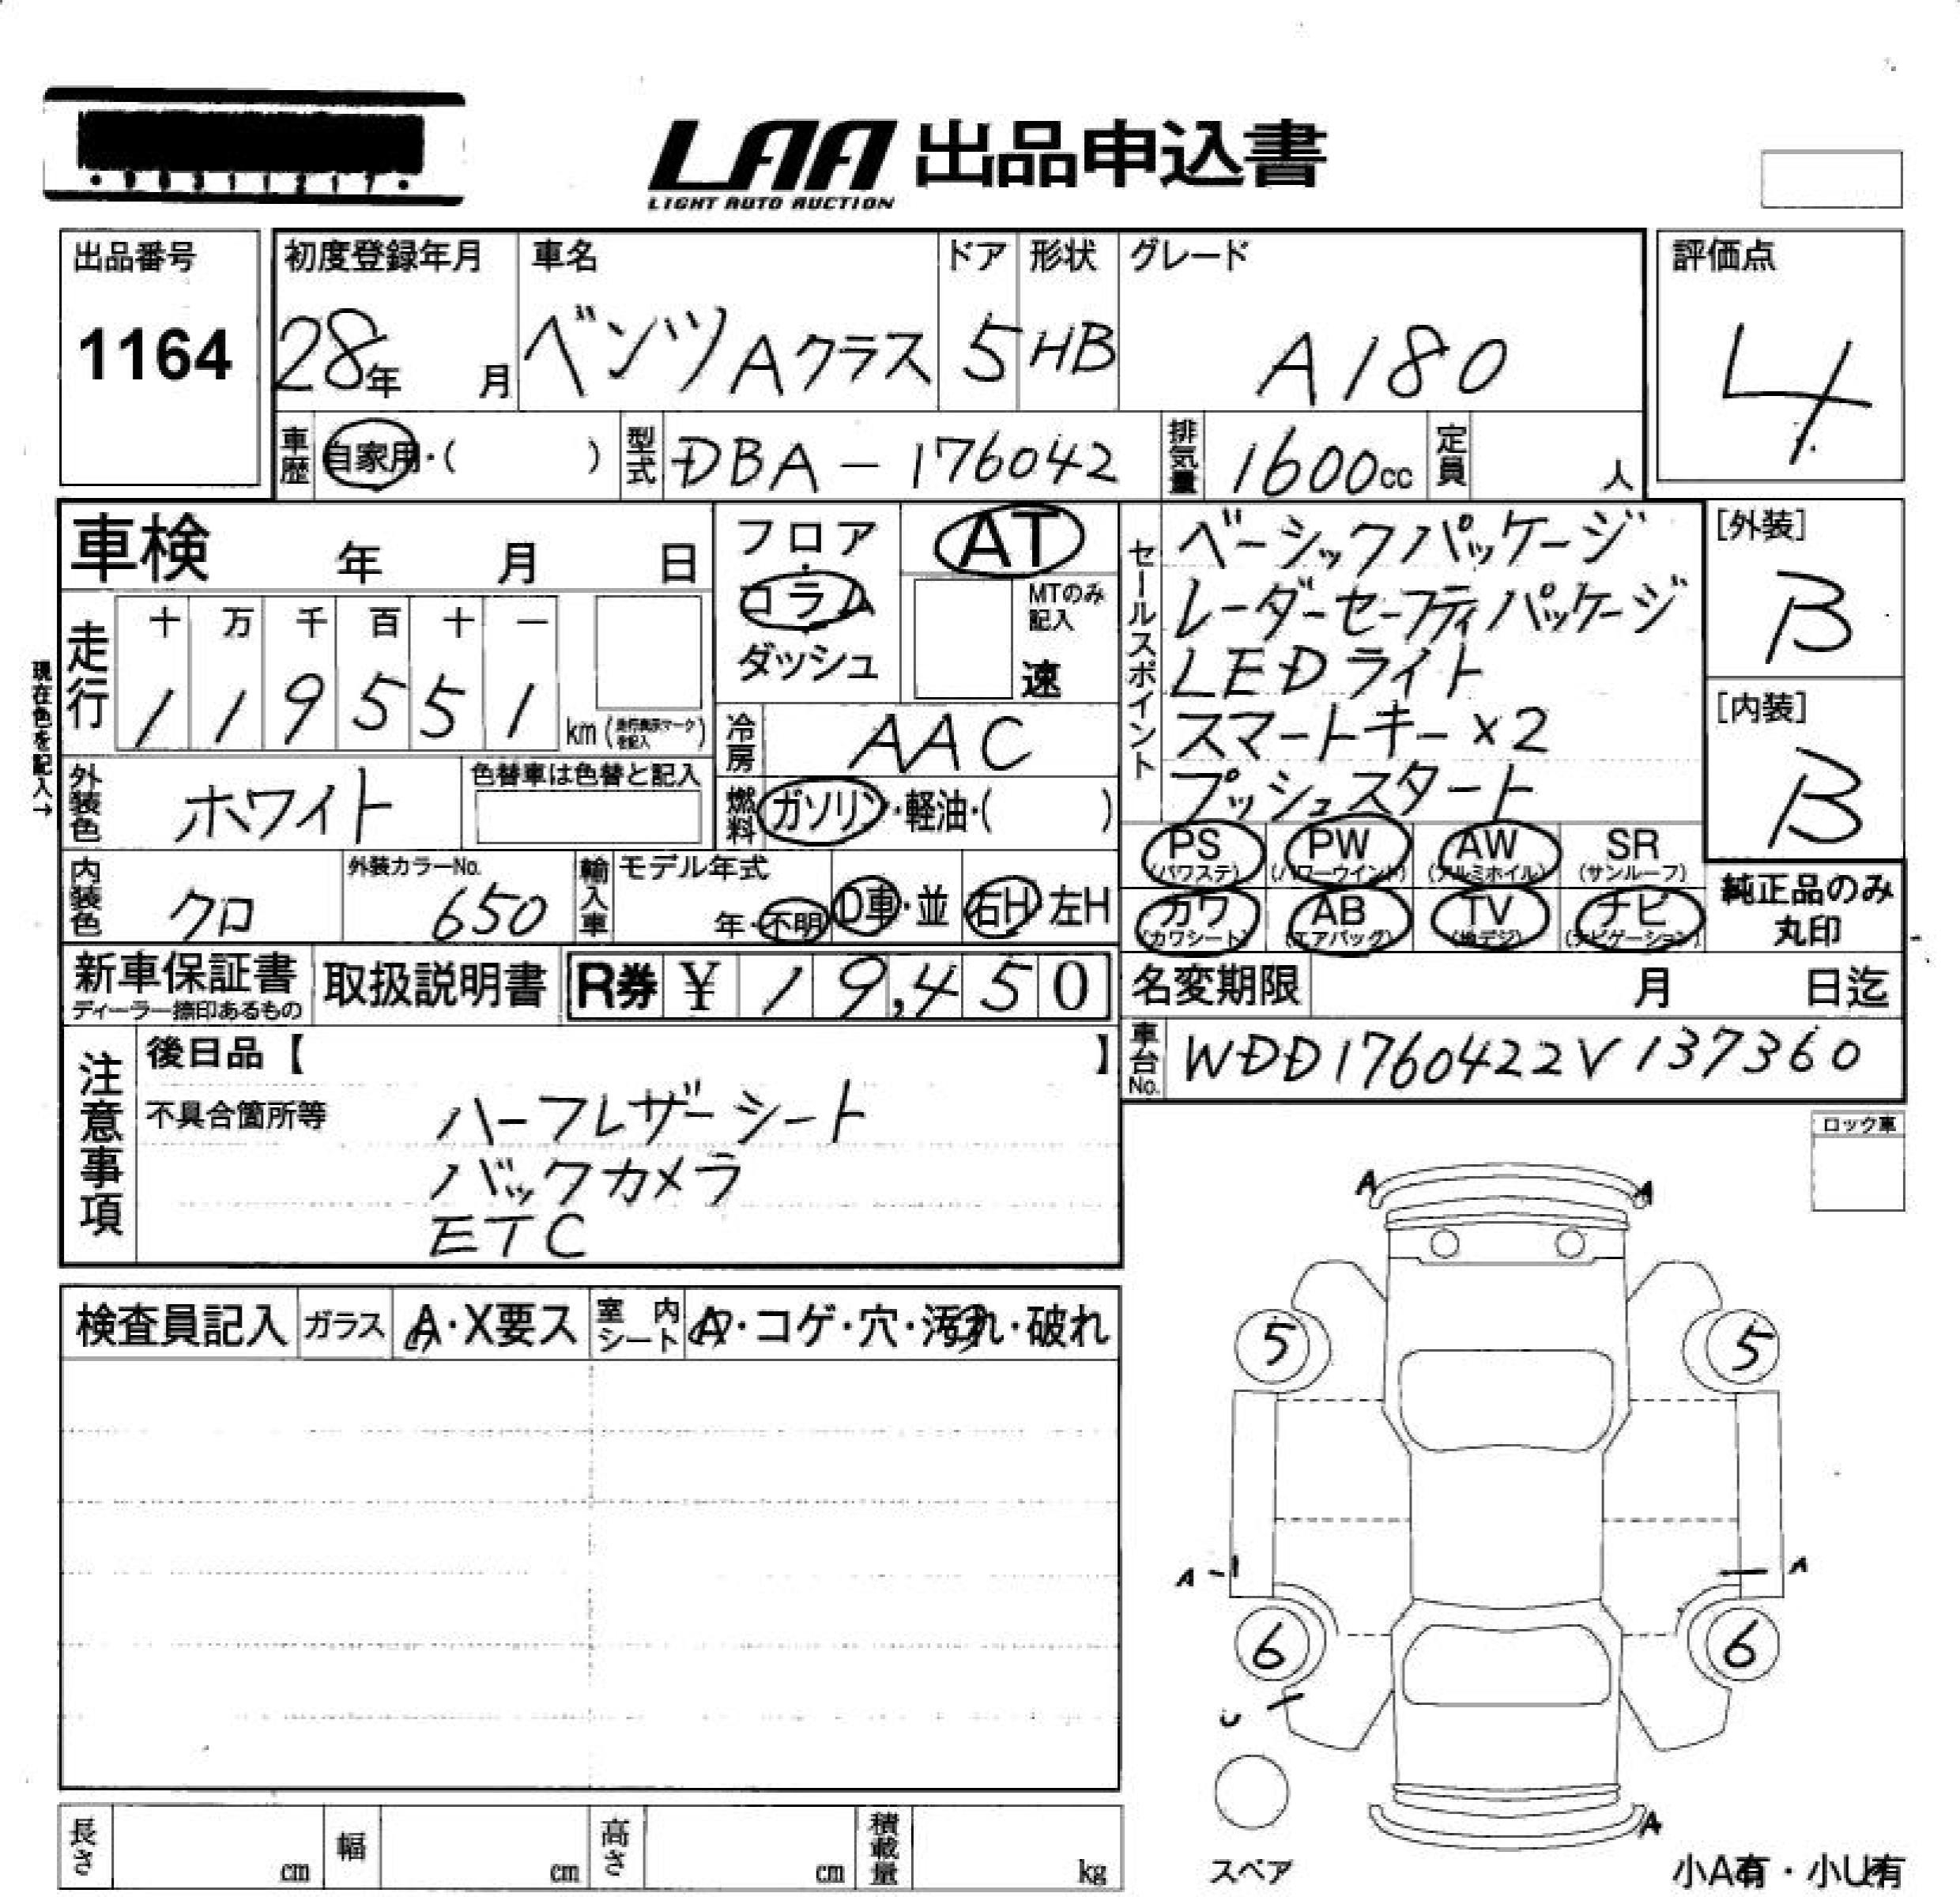 LAA 出品申込書
LIGHT AUTO AUCTION
出品番号
1164
初度登録年月
28年 月
車名
ベンツ Aクラス
ドア
5
形状
HB
グレード
A180
評価点
4
車歴 自家用・( )
型式 DBA-176042
排気量 1600cc
定員 人
車検 年 月 日
走行
十 万 千 百 十 一
1 1 9 5 5 1 km (走行表示マークを記入)
現在色を記入→
フロア
コラム
ダッシュ
AT
MTのみ記入
速
冷房 AAC
燃料 ガソリン・軽油・( )
外装色 ホワイト
色替車は色替と記入
内装色 クロ
外装カラーNo. 650
輸入車
モデル年式
年・不明
D車・並 右H 左H
セールスポイント
ベーシックパッケージ
レーダーセーフティパッケージ
LEDライト
スマートキー×2
プッシュスタート
[外装]
B
[内装]
B
PS (パワステ) PW (パワーウインド) AW (アルミホイル) SR (サンルーフ)
カワ (カワシート) AB (エアバッグ) TV (地デジ) ナビ (ナビゲーション)
純正品のみ
丸印
新車保証書
ディーラー捺印あるもの
取扱説明書
R券 ¥ 19,450
名変期限 月 日迄
車台No. WDD1760422V137360
注意事項
後日品【 】
不具合箇所等
ハーフレザーシート
バックカメラ
ETC
ロック車
検査員記入 ガラス A・X要ス 室内シート A・コゲ・穴・汚れ・破れ
A A
5 5
A A
6 6
U
A
スペア
小A有・小U有
長さ cm 幅 cm 高さ cm 積載量 kg